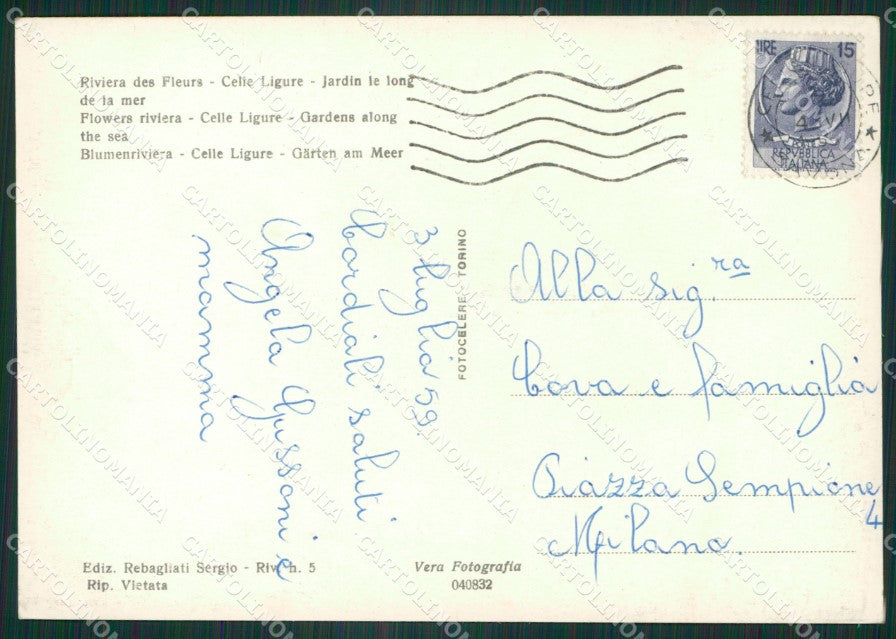 Riviera des Fleurs - Celle Ligure - Jardin le long
de la mer
Flowers riviera - Celle Ligure - Gardens along
the sea
Blumenriviera - Celle Ligure - Gärten am Meer
LIRE 15
REPVBBLICA
ITALIANA
3 luglio 59.
Cordiali saluti
Angela Gussoni e
mamma
FOTOCELERE TORINO
Alla sig.ra
Cova e famiglia
Piazza Sempione
4
Milano.
Ediz. Rebagliati Sergio - Riv. h. 5
Rip. Vietata
Vera Fotografia
040832
CARTOLINOMANIA